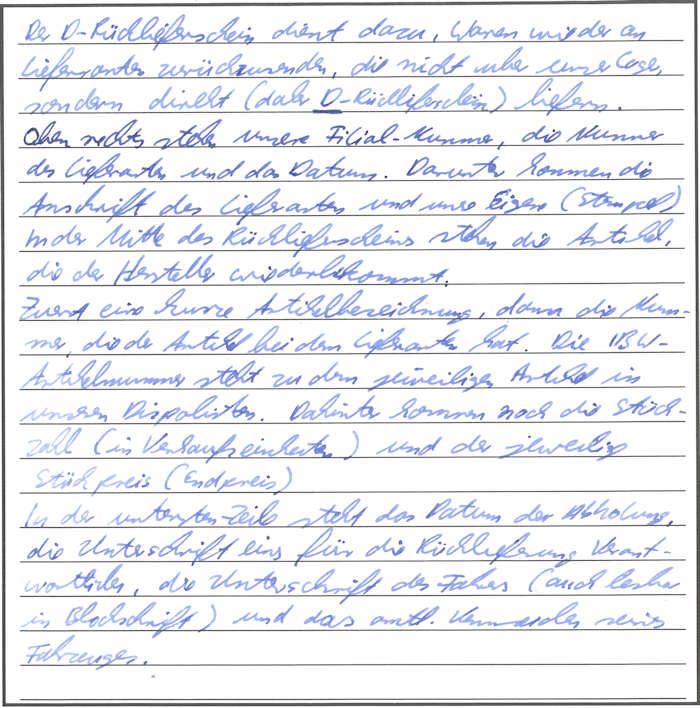 Der D-Rücklieferschein dient dazu, Waren wieder an
Lieferanten zurückzusenden, die nicht über unser Lager,
sondern direkt (daher D-Rücklieferschein) liefern.
Oben rechts stehen unsere Filial-Nummer, die Nummer
des Lieferanten und das Datum. Darunter kommen die
Anschrift des Lieferanten und unsre Eigene (Stempel)
In der Mitte des Rücklieferscheins stehen die Artikel,
die der Hersteller wiederbekommt.
Zuerst eine kurze Artikelbezeichnung, dann die Num-
mer, die der Artikel bei dem Lieferanten hat. Die
Artikelnummer steht zu dem jeweiligen Artikel in
unseren Dispolisten. Dahinter kommen noch die Stück-
zahl (in Verkaufseinheiten) und der jeweilige
Stückpreis (Endpreis)
In der untersten Zeile steht das Datum der Abholung,
die Unterschrift eins für die Rücklieferung Verant-
wortlichen, die Unterschrift des Fahrers (auch lesbar
in Blockschrift) und das amtl. Kennzeichen seines
Fahrzeuges.